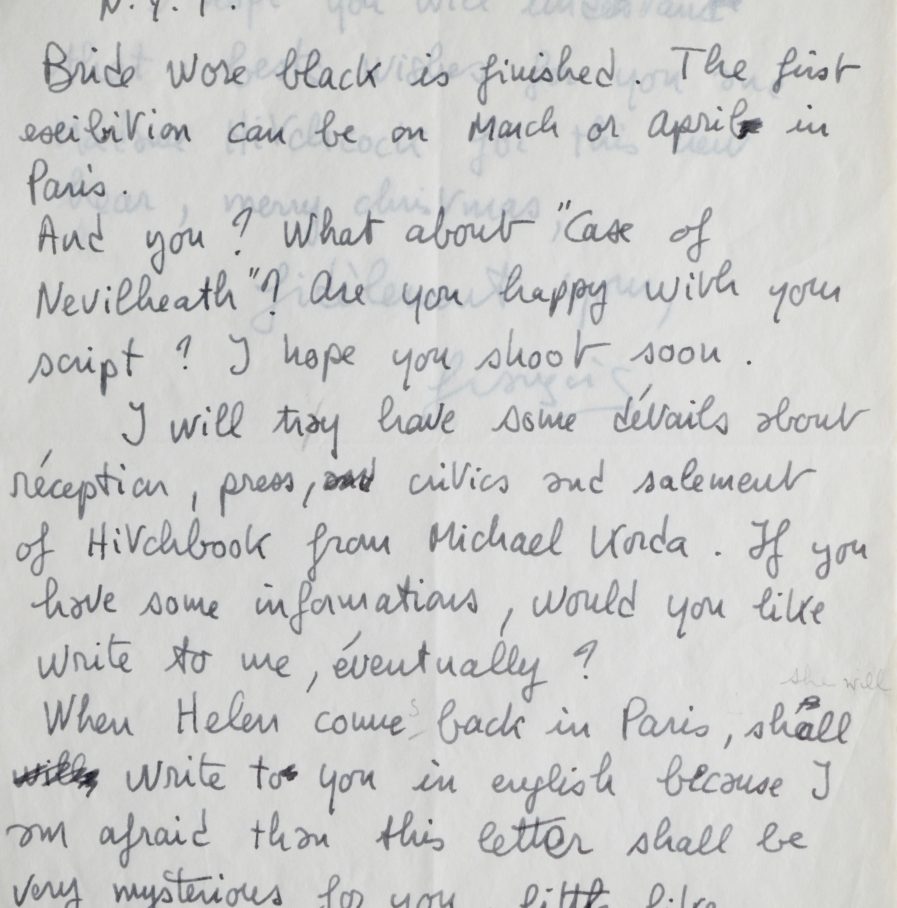 N. Y. T.
Bride wore black is finished. The first
exibition can be on March or april in
Paris.
And you ? What about "Case of
Nevilheath"? Are you happy with your
script ? I hope you shoot soon.
I will tray have some détails about
réception, press, and critics and salement
of Hitchbook from Michael Korda. If you
have some informations, would you like
write to me, éventually ?
she will
When Helen comes back in Paris, shall
will write to you in english because I
am afraid than this letter shall be
very mysterious for you little like